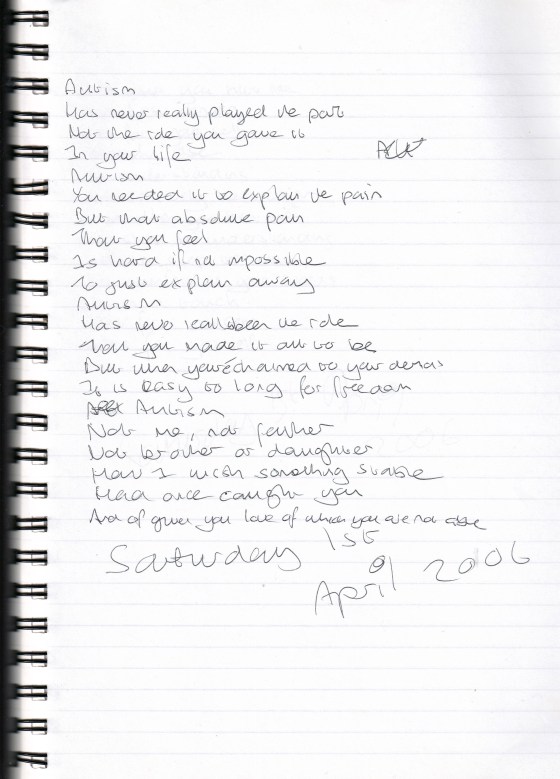 Autism
Has never really played the part
Not the role you gave it
In your life
Autism
You needed it to explain the pain
But that absolute pain
That you feel
Is hard if not impossible
To just explain away
Autism
Has never really been the role
That you made it out to be
But when you're chained to your denial
It is easy to long for freedom
Autism
Not me, not father
Not brother or daughter
How I wish something stable
Had once caught you
And of given you love of which you are not able
Saturday 1st
of
April 2006